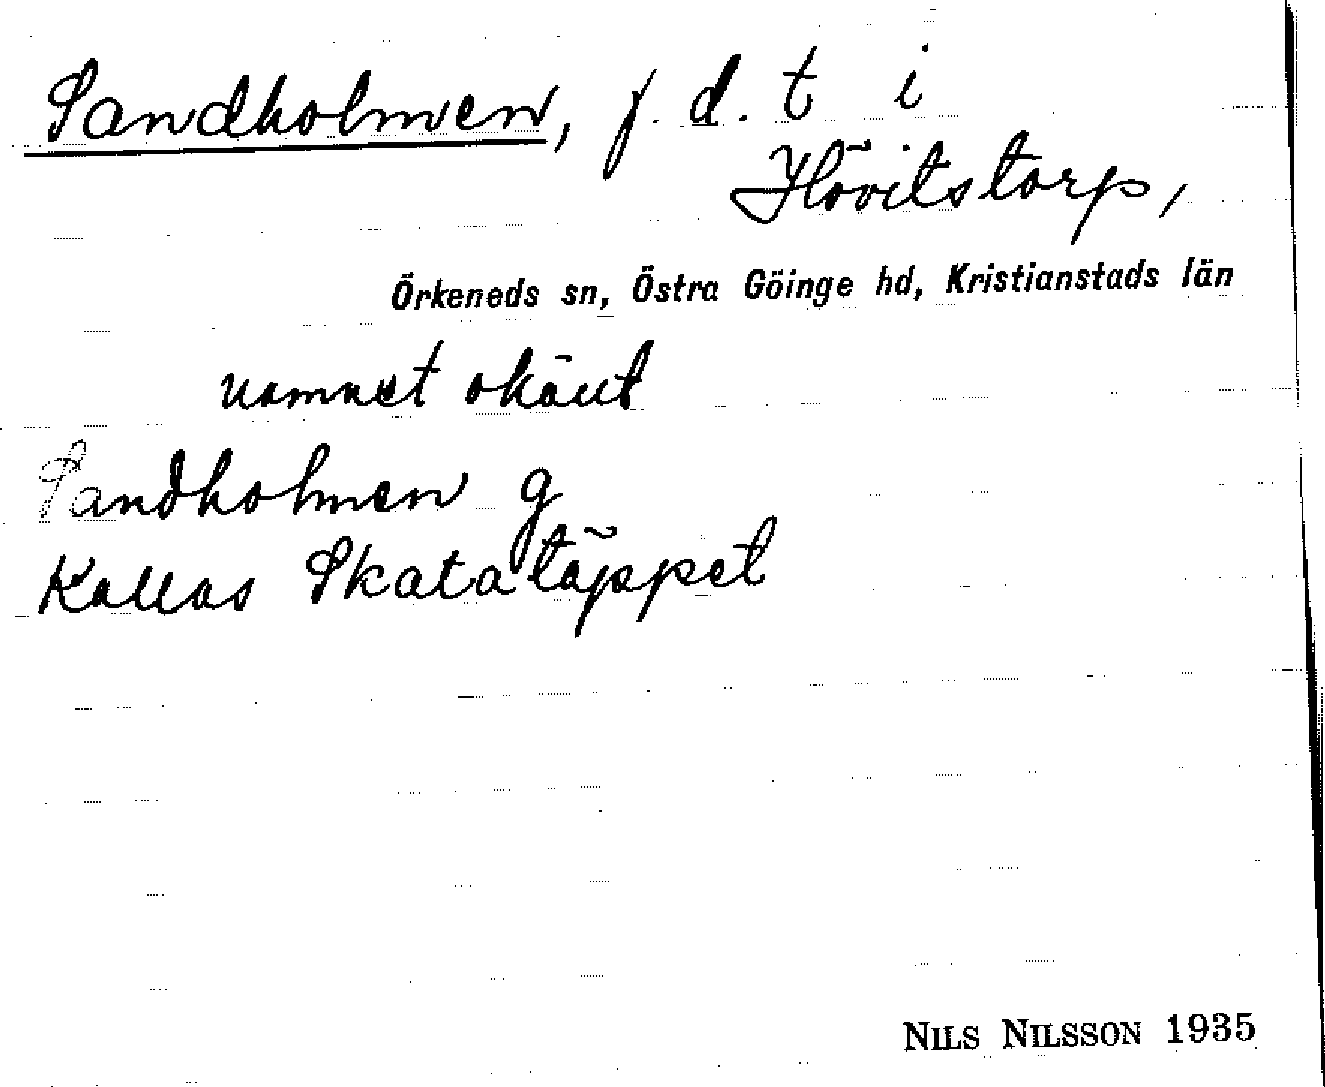 Sandholmen, f. d. t i
Hövitstorp,
Örkeneds sn, Östra Göinge hd, Kristianstads län
namnet okänt
Sandholmen g
Kallas Skatatäppet
NILS NILSSON 1935